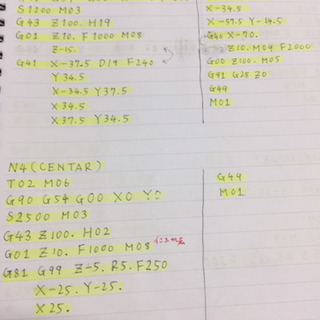 S1200 M03
G43 Z100. H19
G01 Z10. F1000 M08
Z-15.
G41 X-37.5 D19 F240
Y34.5
X-34.5 Y37.5
X34.5
X37.5 Y34.5
X-34.5
X-57.5 Y-14.5
G40 X-70.
Z10. M09 F2000
G00 Z100. M05
G91 G28 Z0
G49
M01
N4(CENTAR)
T02 M06
G90 G54 G00 X0 Y0
S2500 M03
G43 Z100. H02
G01 Z10. F1000 M08
G81 G99 Z-5. R5. F250
X-25. Y-25.
X25.
G49
M01